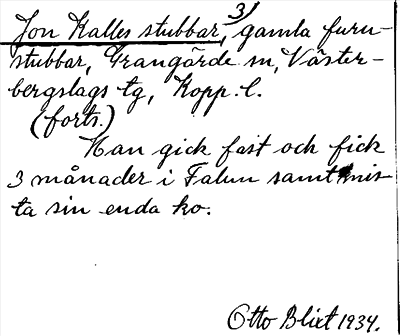 Jon Kalles stubbar, 3) gamla furu-
stubbar, Grangärde sn, Väster-
bergslags tg, Kopp. l.
(forts.)
Han gick fast och fick
3 månader i Falun samt mis-
ta sin enda ko.
Otto Blixt 1934.